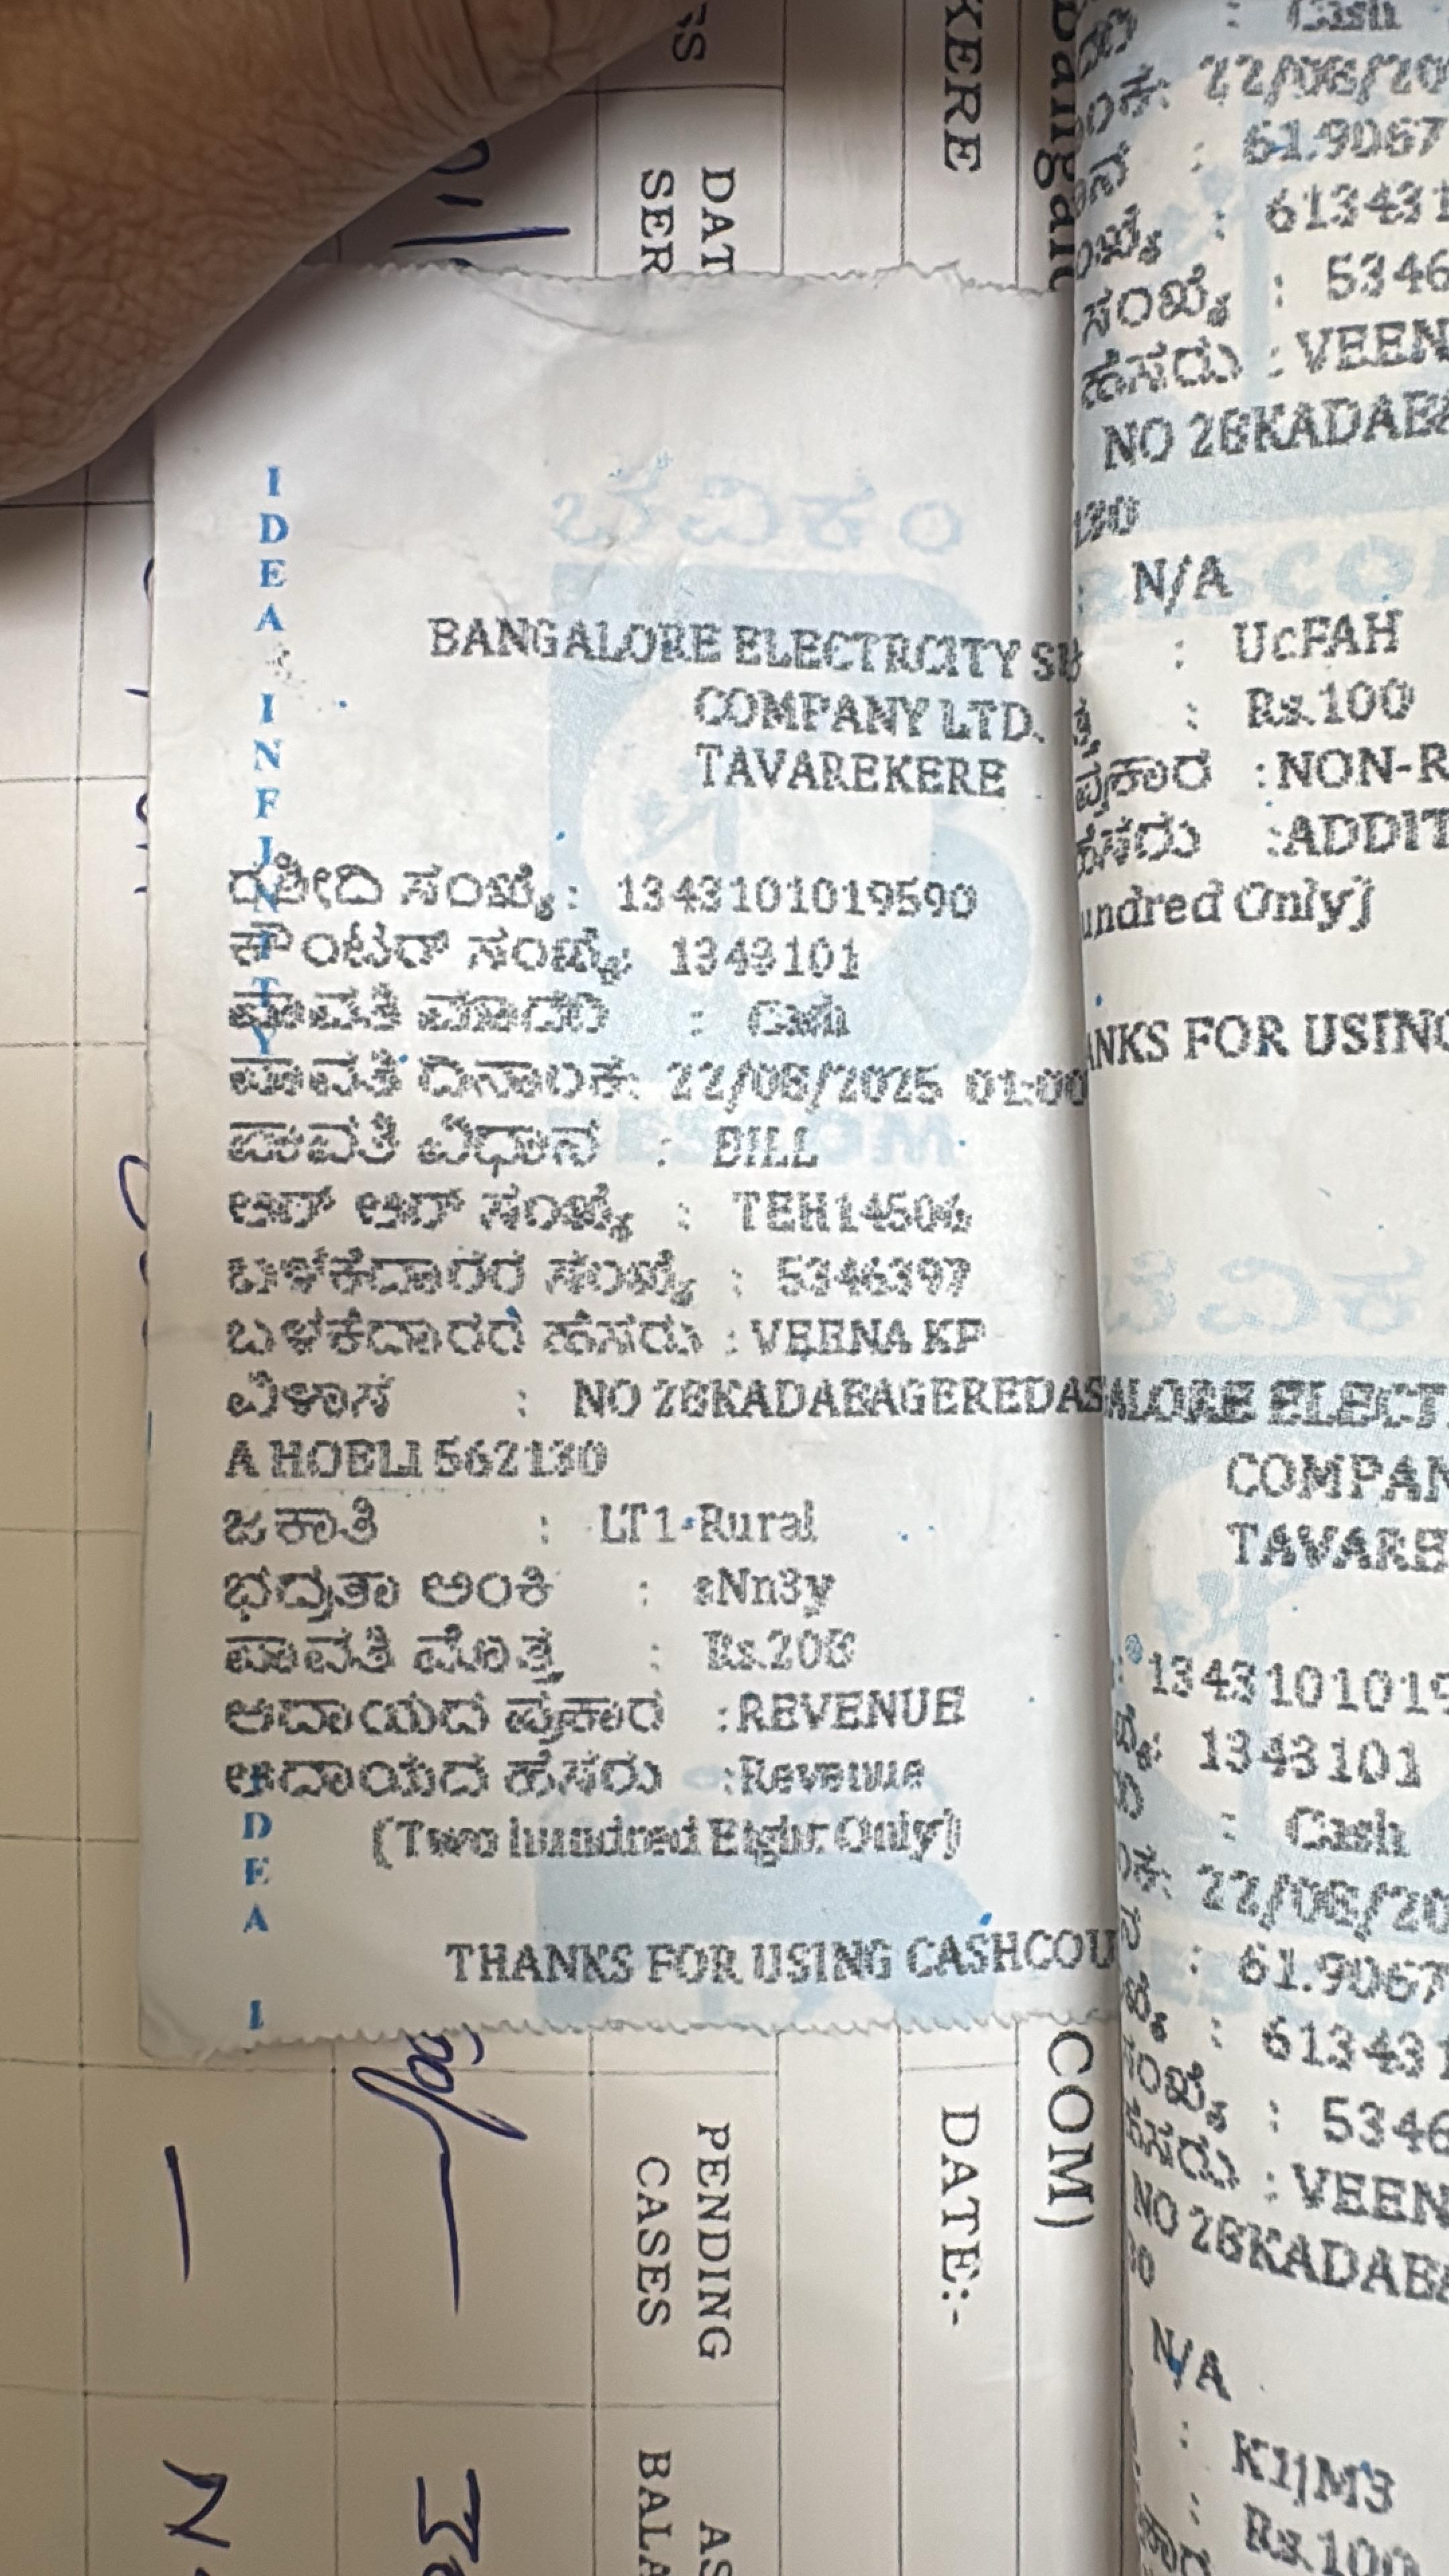 KERE
DAT
SER
IDEA INFINITY
ಬೆವಿಕಂ
BANGALORE ELECTRCITY SU
COMPANY LTD.
TAVAREKERE
ರಶೀದಿ ಸಂಖ್ಯೆ: 1343101019590
ಕೌಂಟರ್ ಸಂಖ್ಯೆ 1343101
ಪಾವತಿ ಮಾದರಿ : Cash
ಪಾವತಿ ದಿನಾಂಕ: 22/08/2025 01:00
ಪಾವತಿ ವಿಧಾನ : BILL
ಆರ್ ಆರ್ ಸಂಖ್ಯೆ : TEH14506
ಬಳಕೆದಾರರ ಸಂಖ್ಯೆ : 5346397
ಬಳಕೆದಾರರ ಹೆಸರು : VEENA KP
ವಿಳಾಸ : NO 28KADABAGEREDAS
A HOBLI 562130
ಜಕಾತಿ : LT1-Rural
ಭದ್ರತಾ ಅಂಕಿ : sNn3y
ಪಾವತಿ ಮೊತ್ತ : Rs.208
ಆದಾಯದ ಪ್ರಕಾರ :REVENUE
ಆದಾಯದ ಹೆಸರು :Revenue
(Two hundred Eight Only)
IDEA I
THANKS FOR USING CASHCOU
: Cash
22/08/20
: 61.9067
: 613431
ಸಂಖ್ಯೆ : 5346
ಹೆಸರು : VEEN
NO 28KADABA
130
: N/A
: UcFAH
: Rs.100
ಪ್ರಕಾರ :NON-R
ಹೆಸರು :ADDIT
undred Only)
ANKS FOR USING
ALORE ELECT
COMPAN
TAVARE
: 134310101 9
: 1343101
: Cash
22/08/20
: 61.9067
: 613431
: 5346
: VEEN
NO 28KADABA
30
N/A
: K1jM3
: Rs.100
COM)
DATE:-
PENDING
CASES
AS
BALA